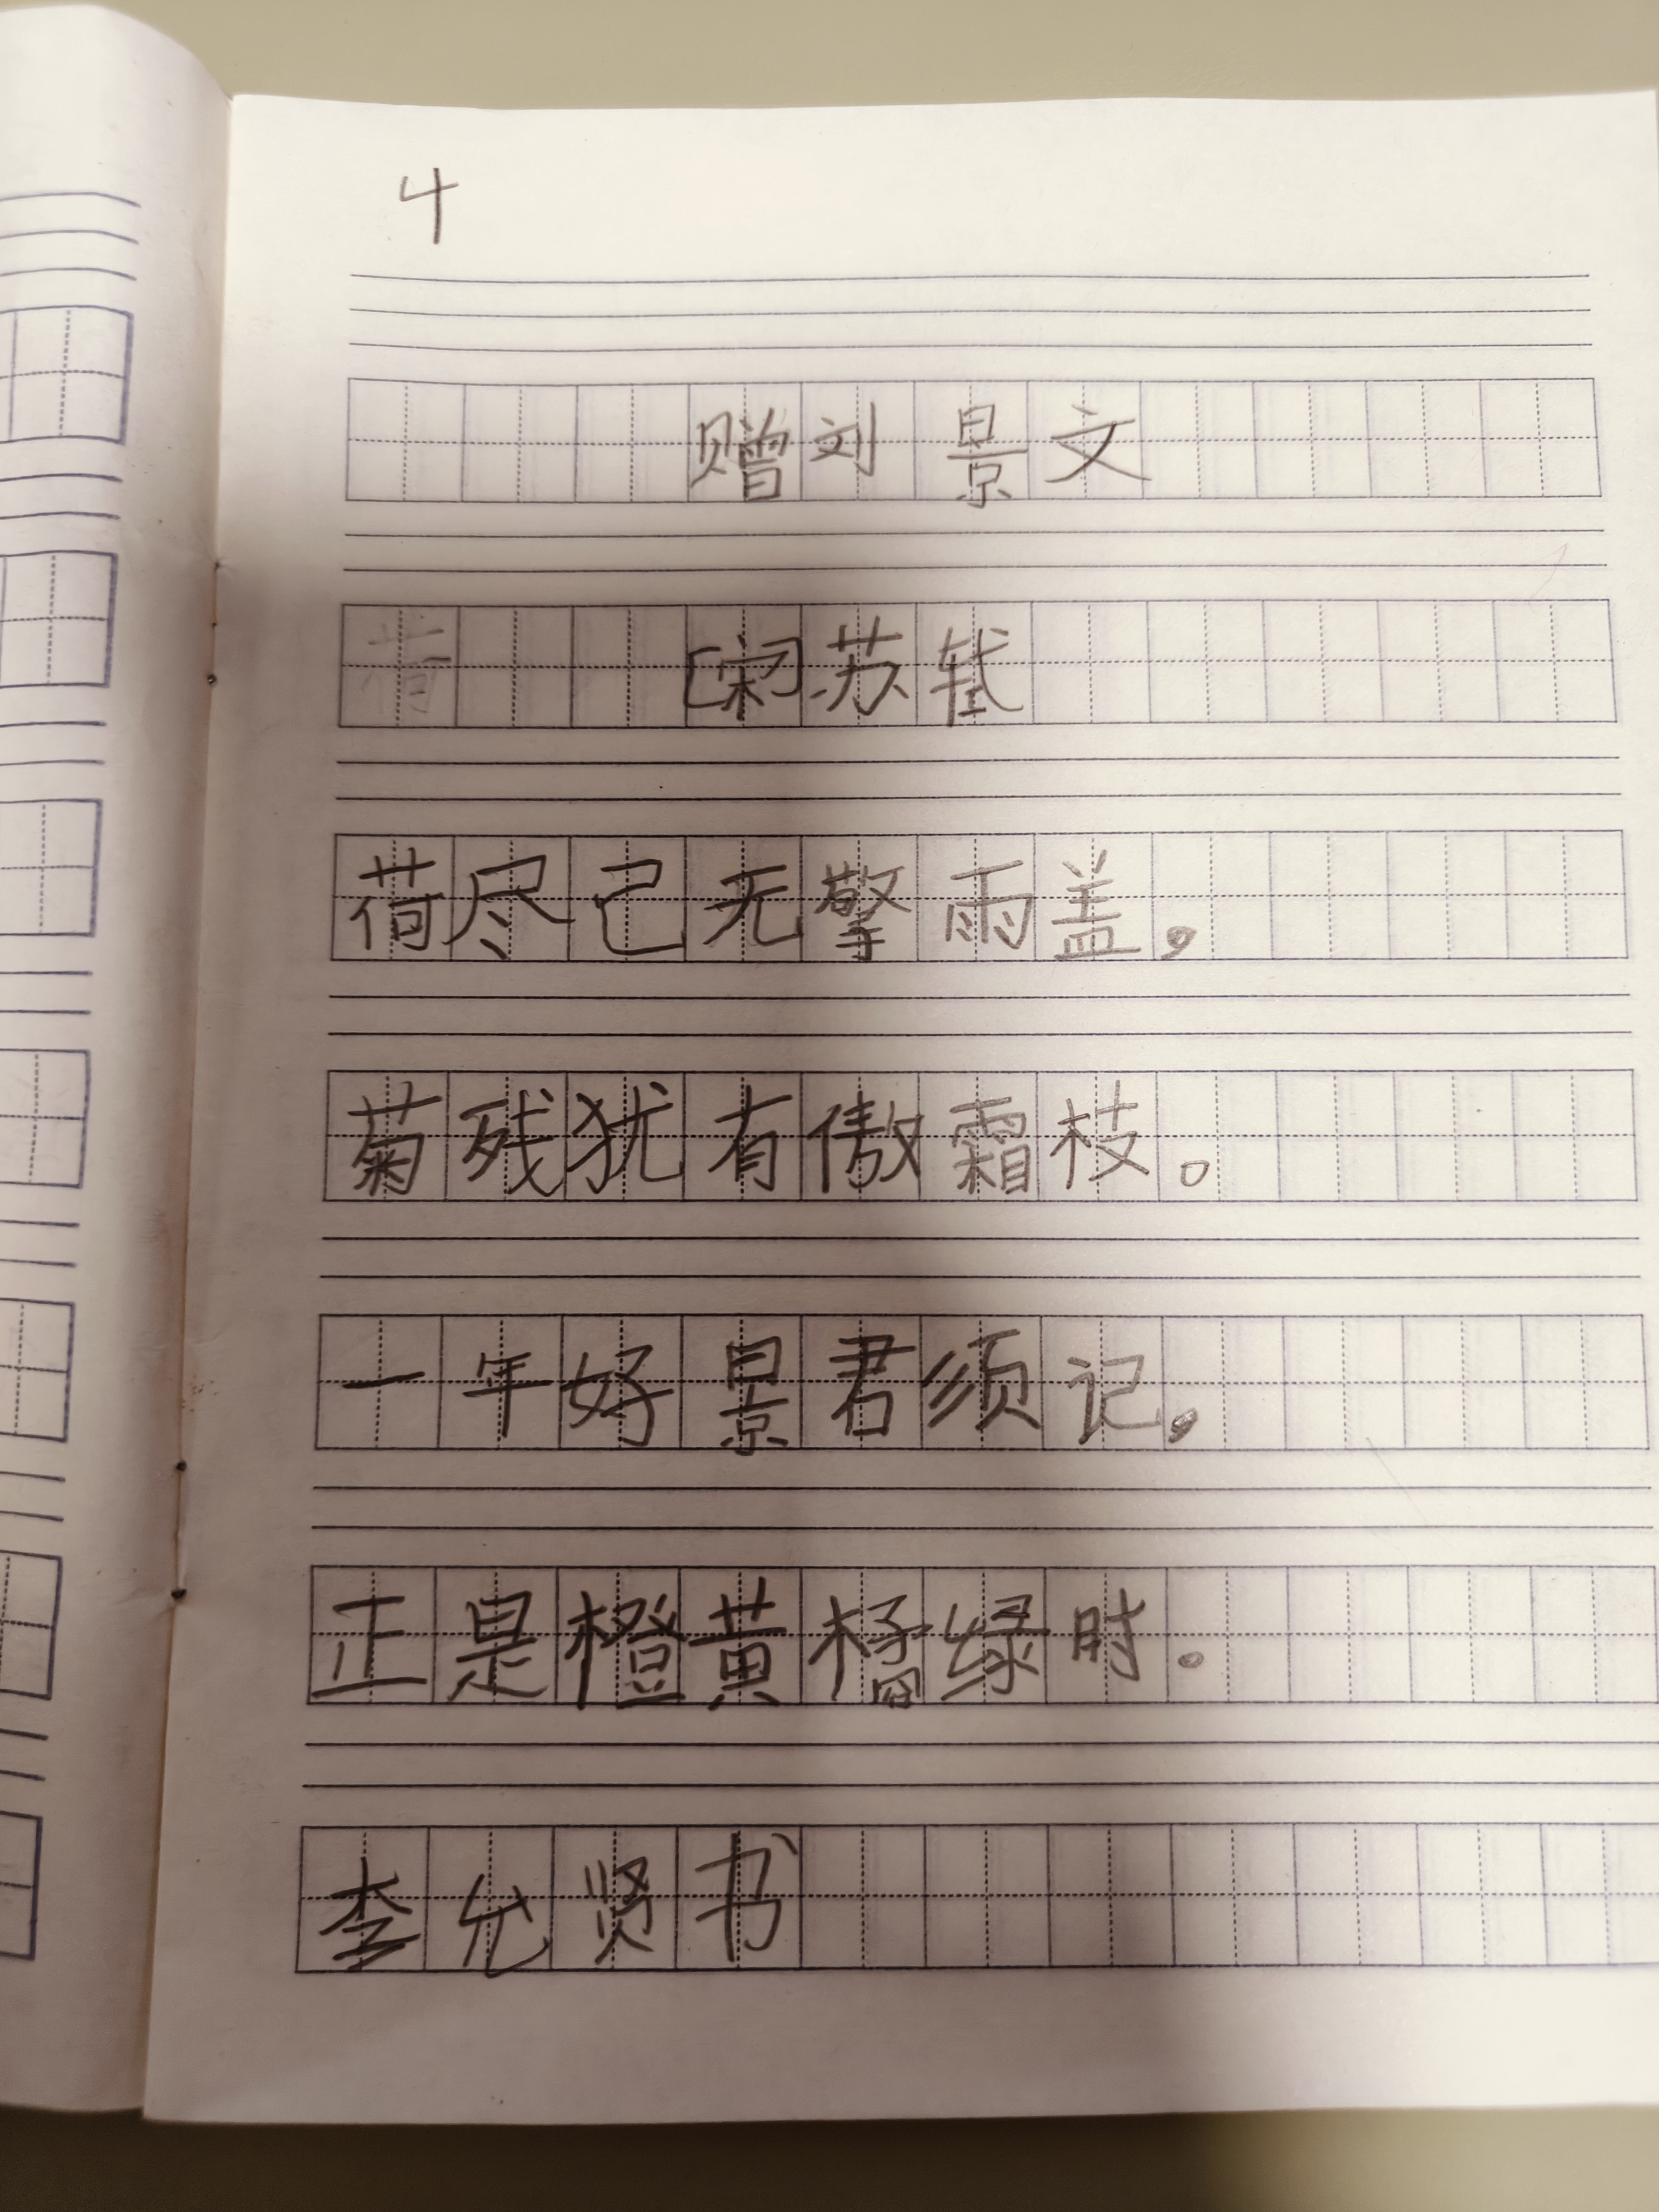 4
赠刘景文
[宋]苏轼
荷尽己无擎雨盖，
菊残犹有傲霜枝。
一年好景君须记，
正是橙黄橘绿时。
李允贤书